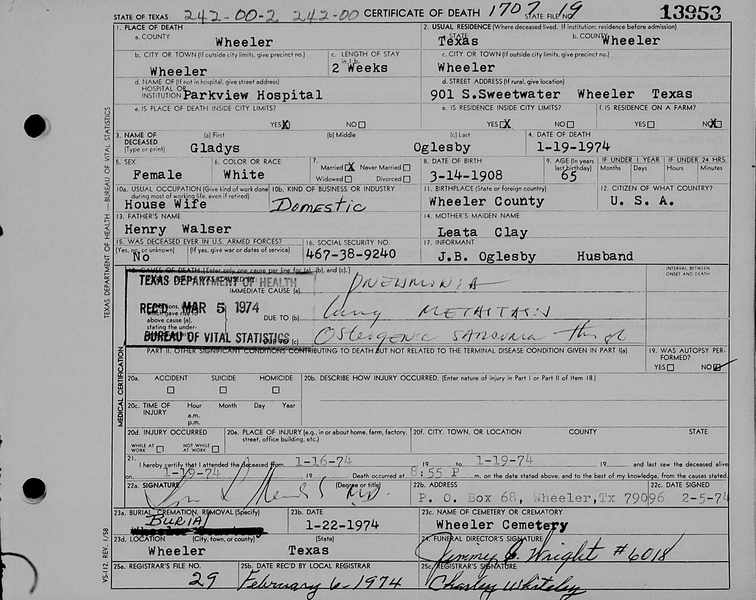 STATE OF TEXAS 242-00-2 242-00 CERTIFICATE OF DEATH 1707 STATE FILE NO. 19 13953
1. PLACE OF DEATH
a. COUNTY Wheeler
2. USUAL RESIDENCE (Where deceased lived. If institution: residence before admission)
a. STATE Texas b. COUNTY Wheeler
b. CITY OR TOWN (If outside city limits, give precinct no.) Wheeler
c. LENGTH OF STAY 2 Weeks
c. CITY OR TOWN (If outside city limits, give precinct no.) Wheeler
d. NAME OF (If not in hospital, give street address) HOSPITAL OR INSTITUTION Parkview Hospital
d. STREET ADDRESS (If rural, give location) 901 S.Sweetwater Wheeler Texas
e. IS PLACE OF DEATH INSIDE CITY LIMITS? YES X NO
e. IS RESIDENCE INSIDE CITY LIMITS? YES X NO
f. IS RESIDENCE ON A FARM? YES NO X
3. NAME OF DECEASED (Type or print) (a) First Gladys (b) Middle (c) Last Oglesby
4. DATE OF DEATH 1-19-1974
5. SEX Female
6. COLOR OR RACE White
7. Married X Never Married Widowed Divorced
8. DATE OF BIRTH 3-14-1908
9. AGE (In years last birthday) 65
IF UNDER 1 YEAR Months Days
IF UNDER 24 HRS. Hours Minutes
10a. USUAL OCCUPATION (Give kind of work done during most of working life, even if retired) House Wife
10b. KIND OF BUSINESS OR INDUSTRY Domestic
11. BIRTHPLACE (State or foreign country) Wheeler County
12. CITIZEN OF WHAT COUNTRY? U. S. A.
13. FATHER'S NAME Henry Walser
14. MOTHER'S MAIDEN NAME Leata Clay
15. WAS DECEASED EVER IN U.S. ARMED FORCES? (Yes, no, or unknown) (If yes, give war or dates of service) No
16. SOCIAL SECURITY NO. 467-38-9240
17. INFORMANT J.B. Oglesby Husband
18. CAUSE OF DEATH (Enter only one cause per line for (a), (b), and (c).)
INTERVAL BETWEEN ONSET AND DEATH
TEXAS DEPARTMENT OF HEALTH
REC'D MAR 5 1974
BUREAU OF VITAL STATISTICS
IMMEDIATE CAUSE (a) Pneumonia
DUE TO (b) Lung Metastasis
DUE TO (c) Osteogenic Sarcoma
PART II. OTHER SIGNIFICANT CONDITIONS CONTRIBUTING TO DEATH BUT NOT RELATED TO THE TERMINAL DISEASE CONDITION GIVEN IN PART I(a)
19. WAS AUTOPSY PERFORMED? YES NO
20a. ACCIDENT SUICIDE HOMICIDE
20b. DESCRIBE HOW INJURY OCCURRED. (Enter nature of injury in Part I or Part II of item 18.)
20c. TIME OF INJURY Hour Month Day Year a.m. p.m.
20d. INJURY OCCURRED WHILE AT WORK NOT WHILE AT WORK
20e. PLACE OF INJURY (e.g., in or about home, farm, factory, street, office building, etc.)
20f. CITY, TOWN, OR LOCATION COUNTY STATE
21. I hereby certify that I attended the deceased from 1-16-74 19 to 1-19-74 19 and last saw the deceased alive
on 1-19-74 19 Death occurred at 8:55 P m. on the date stated above, and to the best of my knowledge, from the causes stated.
22a. SIGNATURE (Degree or title) M.D.
22b. ADDRESS P. O. Box 68, Wheeler,Tx 79096
22c. DATE SIGNED 2-5-74
23a. BURIAL, CREMATION, REMOVAL (Specify) BURIAL
23b. DATE 1-22-1974
23c. NAME OF CEMETERY OR CREMATORY Wheeler Cemetery
23d. LOCATION (City, town, or county) Wheeler (State) Texas
24. FUNERAL DIRECTOR'S SIGNATURE Jimmy C. Wright #6018
25a. REGISTRAR'S FILE NO. 29
25b. DATE REC'D BY LOCAL REGISTRAR February 6-1974
25c. REGISTRAR'S SIGNATURE Charley Whiteley
TEXAS DEPARTMENT OF HEALTH — BUREAU OF VITAL STATISTICS
MEDICAL CERTIFICATION
VS-112, REV. 1/58